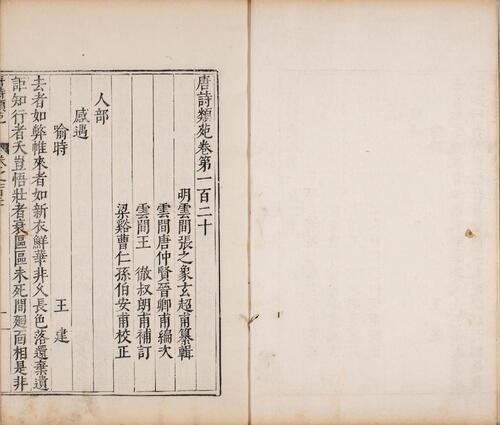 唐詩類苑卷第一百二十
明雲間張之象玄超甫纂輯
雲間唐仲賢晉卿甫編次
雲間王　徹叔朗甫補訂
梁谿曹仁孫伯安甫校正
人部
感遇
喻時　王建
去者如弊帷來者如新衣鮮華非久長色落還棄遺
詎知行者夭豈悟壯者衰區區未死間迴面相是非